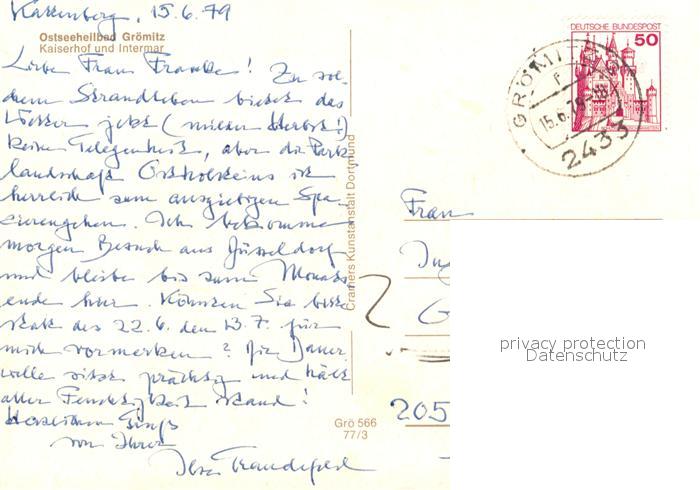 Kattenberg, 15.6.79
Ostseeheilbad Grömitz
Kaiserhof und Intermar
Liebe Frau Franke! Zu sol-
chem Strandleben bietet das
Wetter jetzt (milder Herbst!)
keine Gelegenheit, aber die Park-
landschaft Ostholsteins ist
herrlich zum ausgiebigen Spa-
zierengehen. Ich bekomme
morgen Besuch aus Düsseldorf
und bleibe bis zum Monats-
ende hier. Können Sie bitte
statt des 22.6. den 13.7. für
mich vormerken? Die Dauer-
welle sitzt prächtig und hält
aller Feuchtigkeit stand!
Herzlichen Gruß
von Ihrer
Cramers Kunstanstalt Dortmund
Grö 566
77/3
DEUTSCHE BUNDESPOST
50
GRÖMITZ
15.6.79-18
2433
Frau
In
G
205
privacy protection
Datenschutz